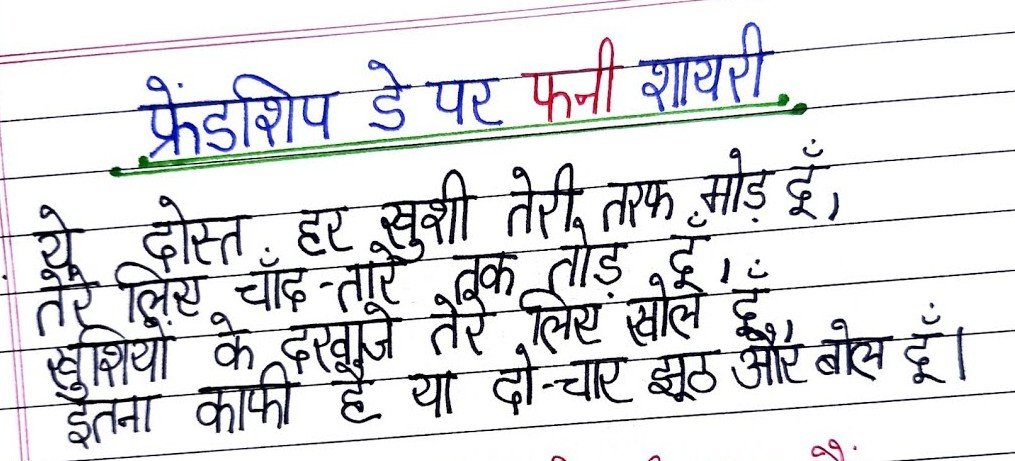 फ्रेंडशिप डे पर फनी शायरी
ये दोस्त हर खुशी तेरी तरफ मोड़ दूँ,
तेरे लिए चाँद-तारे तक तोड़ दूँ,
खुशियों के दरवाजे तेरे लिए खोल दूँ
इतना काफी है या दो-चार झूठ और बोल दूँ।